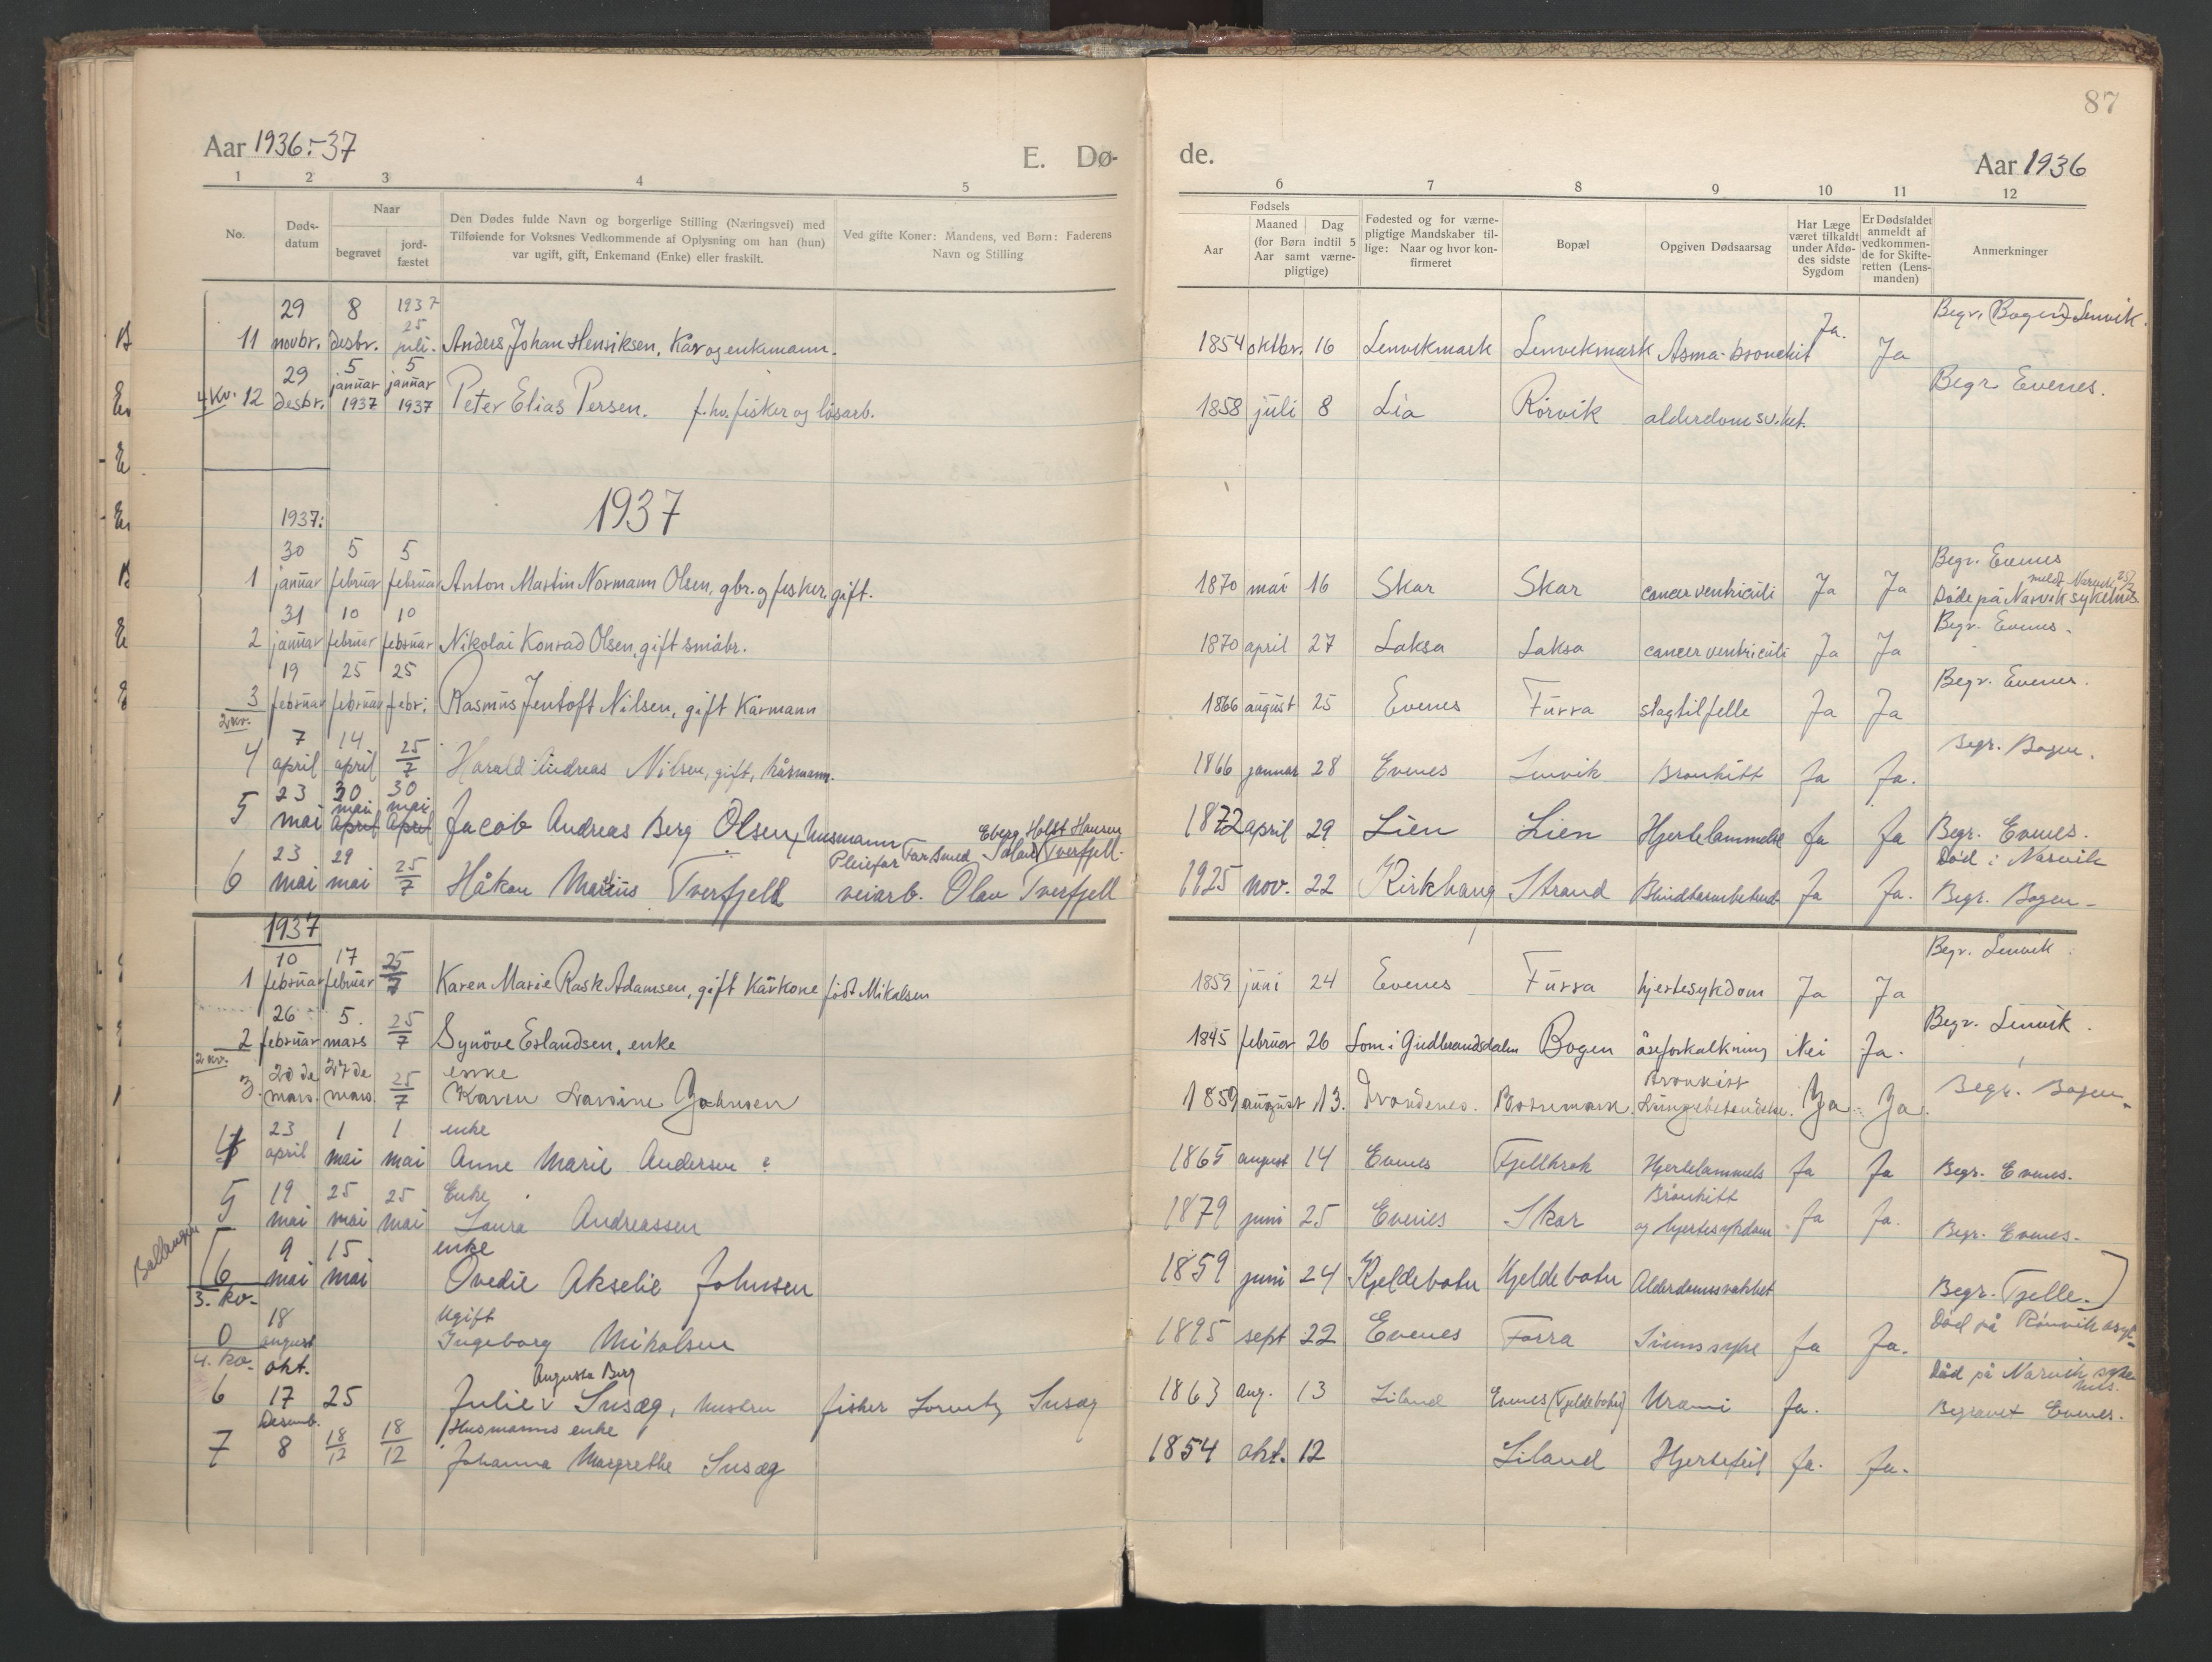 87
Aar 1936-37
E. Dø-
de.
Aar 1936
1 2 3 4 5
6 7 8 9 10 11 12
No.
Døds-
datum
Naar
begravet
jord-
fæstet
Den Dødes fulde Navn og borgerlige Stilling (Næringsvei) med
Tilføiende for Voksnes Vedkommende af Oplysning om han (hun)
var ugift, gift, Enkemand (Enke) eller fraskilt.
Ved gifte Koner: Mandens, ved Børn: Faderens
Navn og Stilling
Fødsels
Aar
Maaned Dag
(for Børn indtil 5
Aar samt værne-
pligtige)
Fødested og for værne-
pligtige Mandskaber til-
lige: Naar og hvor kon-
firmeret
Bopæl
Opgiven Dødsaarsag
Har Læge
været tilkaldt
under Afdø-
des sidste
Sygdom
Er Dødsfaldet
anmeldt af
vedkommen-
de for Skifte-
retten (Lens-
manden)
Anmerkninger
29 8 1937
25
11 novbr. desbr. juli. Anders Johan Henriksen, Kår og enkemann.
1854 oktbr. 16 Lenvikmark Lenvikmark Asma-bronchit Ja. Ja Begr. (Bogen) Lenvik.
29 5 5
januar januar
4. Kv. 12 desbr. 1937 1937 Peter Elias Persen. f.hv. fisker og løsarb.
1858 juli 8 Lia Rörvik alderdomsvikt. Begr. Evenes.
1937
1937:
30 5 5
1 januar februar februar Anton Martin Normann Olsen, gbr. og fisker, gift.
1870 mai 16 Skar Skar cancer ventriculi Ja Ja Begr. Evenes
meldt Narvik 25/2
Döde på Narvik sykehus.
31 10 10
2 januar februar februar Nikolai Konrad Olsen, gift småbr.
1870 april 27 Laksa Laksa cancer ventriculi Ja Ja Begr. Evenes.
19 25 25
3 februar februar febr. Rasmus Jentoft Nilsen, gift Kårmann
2. kv.
1866 august 25 Evenes Furra slagtilfelle Ja Ja Begr. Evenes.
7 14 25
4 april april 7 Harald Andreas Nilsen, gift, kårmann.
1866 januar 28 Evenes Lenvik Bronkitt Ja Ja. Begr. Bogen.
23 30 30
mai mai
5 mai april april Jacob Andreas Berg Olsen, husmann
1872 april 29 Lien Lien Hjertelammelse Ja Ja Begr. Evenes.
23 29 25
Pleiefar
6 mai mai 7 Håkon Marius Tverfjell veiarb. Olav Tverfjell
1925 nov. 22 Kirkhaug Strand Blindtarmbetend. Ja Ja. Död i Narvik
Begr. Bogen-
1937
10 17 25
1 februar februar 7 Karen Marie Rask Adamsen, gift Kårkone född Mikalsen
1859 juni 24 Evenes Furra hjertesykdom Ja Ja Begr. Lenvik
26 5. 25
2 februar mars 7 Synöve Erlandsen, enke
2. kv.
1845 februar 26 Lom i Gudbrandsdalen Bogen åreforkalkning Nei Ja. Begr. Lenvik.
20 de 27 de 25 enke
3. mars. mars. 7 Karen Johnsen
1859 august 13. Trondenes. Bronkitt
Lungebetendelse. Ja Ja. Begr. Bogen-
23 1 1 enke
4 april mai mai Anne Marie Andersen
1865 august 14 Evenes Fjellkrok Hjertelammels Ja Ja Begr. Evenes.
19 25 25 Enke
5 mai mai mai Laura Andreassen
1879 juni 25 Evenes Skar Bronkitt
og hjertesykdom Ja Ja. Begr. Evenes-
Ballangen
9 15 enke
6 mai mai Ovedie Akselie Johnsen
3. kv-
1859 juni 24 Kjeldebotn Kjeldebotn Alderdomssvakhet Begr. Fjelle.
18 Ugift
0 august Ingeborg Mikalsen
4. kv-
1895 sept 22 Evenes Forra Ja Ja. Död på Rönvik asyl-
okt. Augusta Berg
6 17 25 Julie Susæg, hustru fisker Lorentz Susæg
1863 aug. 13 Liland Evenes (Fjeldebotn) Urami Ja. Död på Narvik syke
hus.
Begravet Evenes.
Desemb. 18 18 Husmanns enke
7 8 12 12 Johanna Margrethe Susæg
1854 okt. 12 Liland Hjertefeil Ja. Ja.